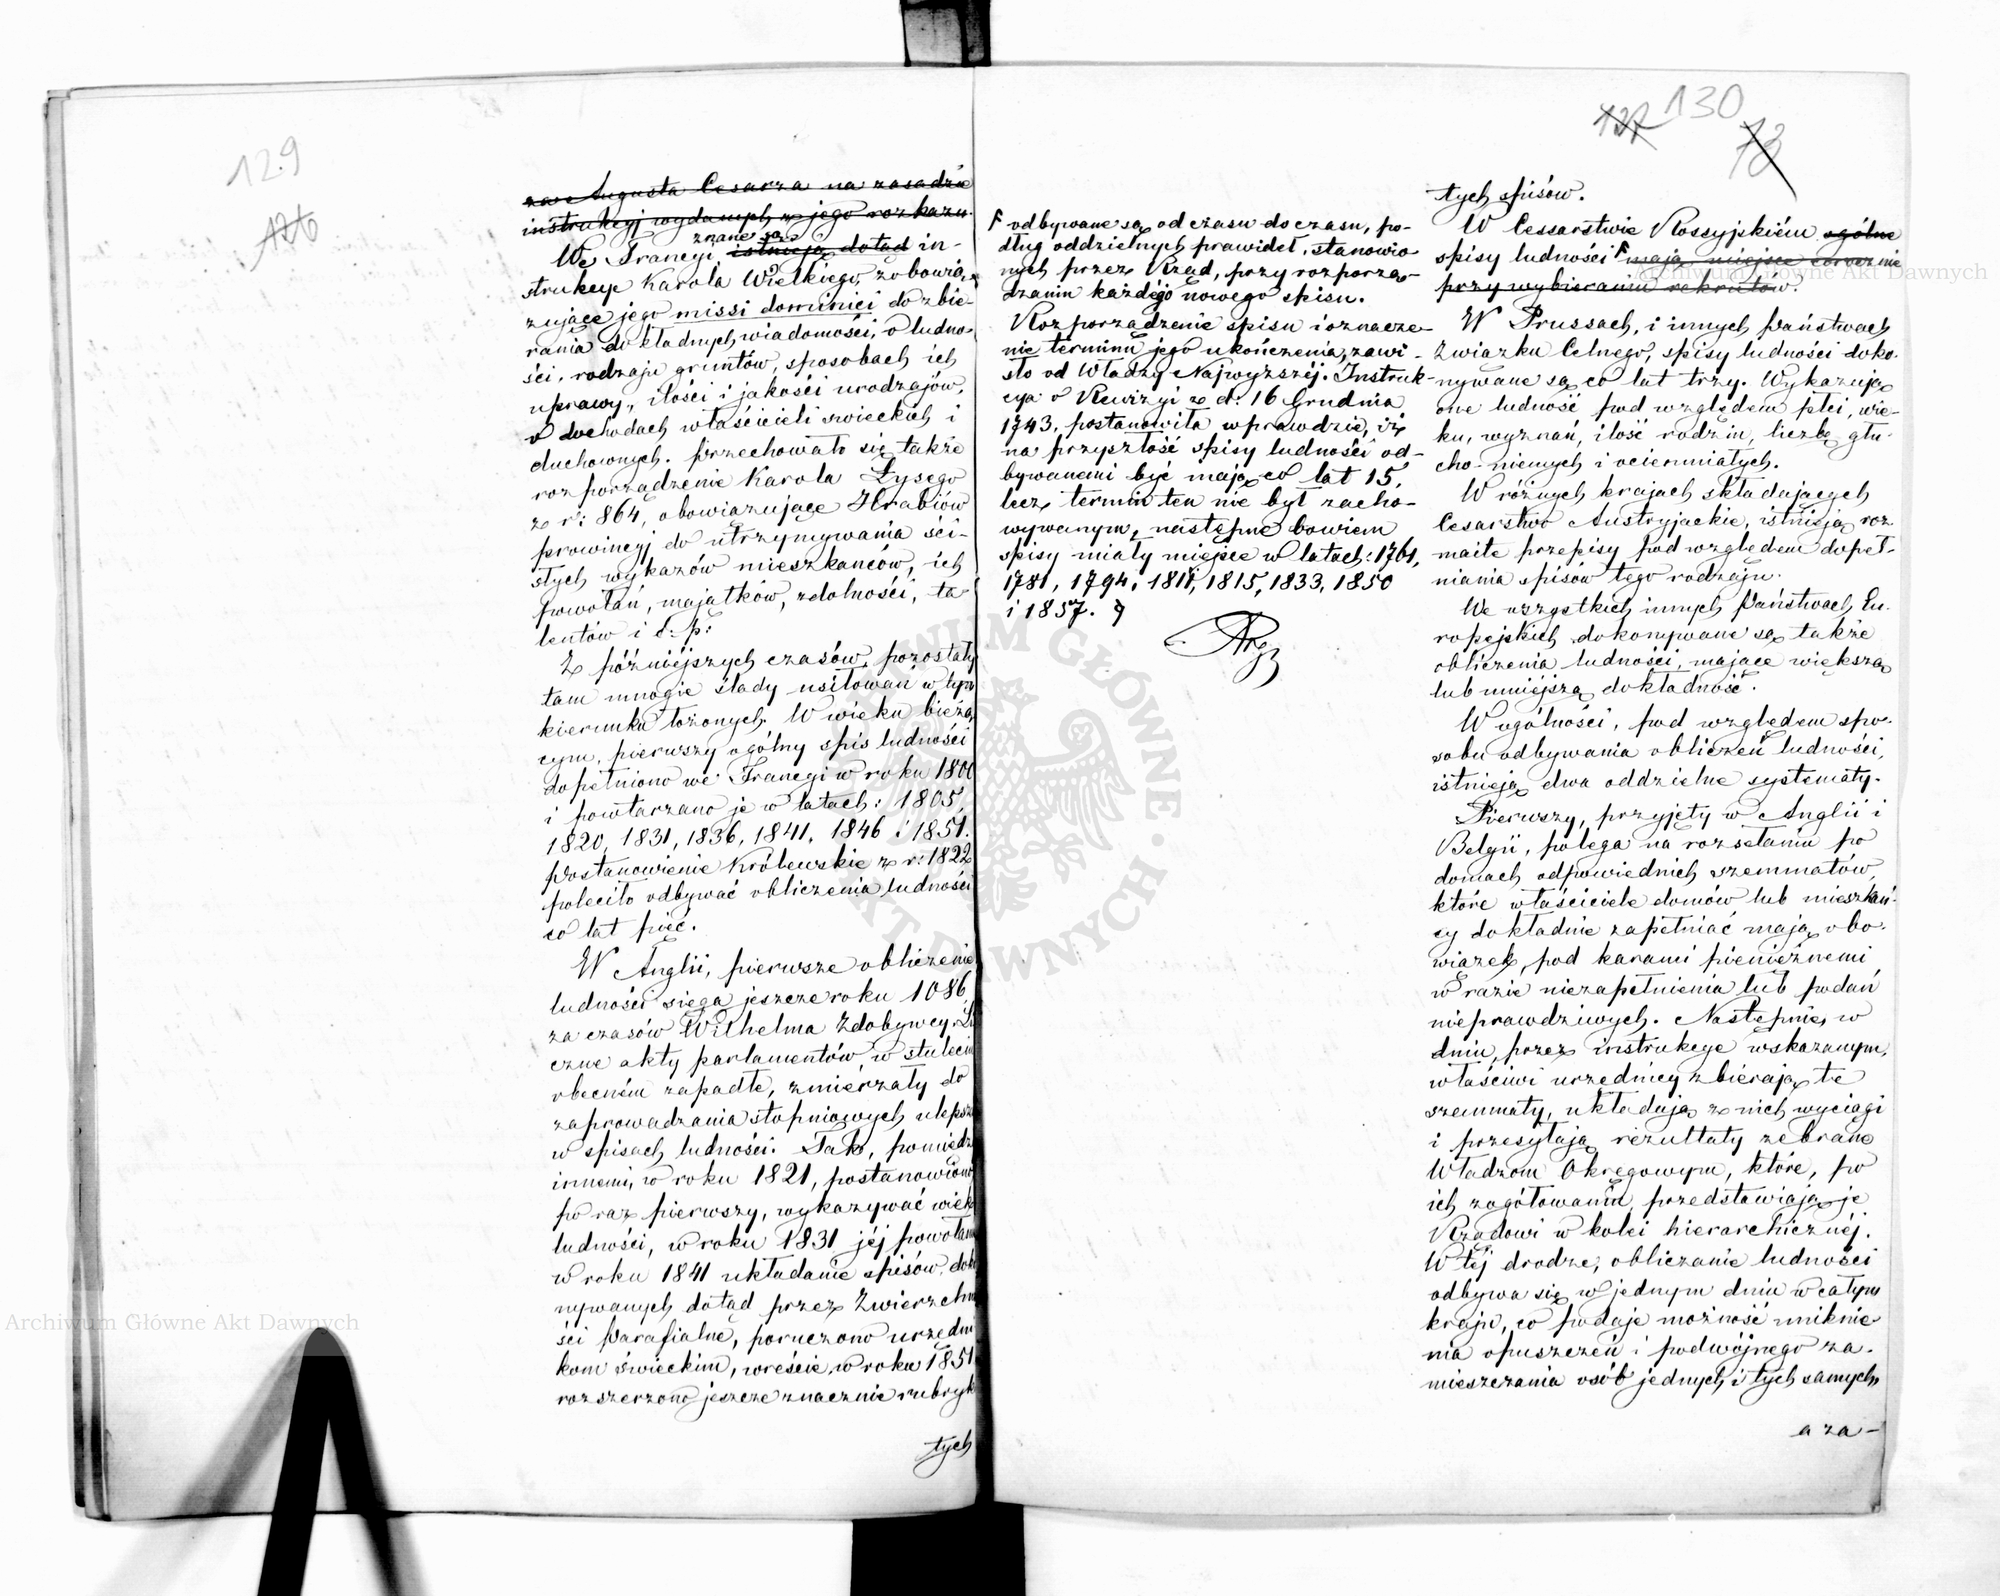 129
126
za Augusta Cesarza na zasadzie
instrukcyj wydanych z jego rozkazu.
znane są
We Francyi istnieją dotąd in-
strukcye Karola Wielkiego, zobowią-
zujące jego missi dominici do zbie-
rania dokładnych wiadomości, o ludno-
ści, rodzaju gruntów, sposobach ich
uprawy, ilości i jakości urodzajów,
o dochodach właścicieli swieckich i
duchownych. Przechowało się także
rozporządzenie Karola Łysego
z r: 864, obowiązujące Hrabiów
prowincyj do utrzymywania ści-
słych wykazów mieszkańców, ich
powołań, majątków, zdolności, ta-
lentów i t: p:
Z późniejszych czasów, pozostały
tam mnogie ślady usiłowań w tym
kierunku łożonych. W wieku bieżą-
cym, pierwszy ogólny spis ludności
dopełniono we Francyi w roku 1800
i powtarzano je w latach: 1805,
1820, 1831, 1836, 1841, 1846 i 1851.
Postanowienie Królewskie z r: 1822
poleciło odbywać obliczenia ludności
co lat pięć.
W Anglii, pierwsze obliczenie
ludności sięga jeszcze roku 1086,
za czasów Wilhelma Zdobywcy. Li
czne akty parlamentów w stuleciu
obecném zapadłe, zmierzały do
zaprowadzania stopniowych ulepsz
w spisach ludności. Tak, pomiędz
innemi, w roku 1821, postanowiono
po raz pierwszy, wykazywać wiek
ludności, w roku 1831 jéj powołan
w roku 1841 układanie spisów, doko
nywanych dotąd przez Zwierzchn
ści Parafialne, poruczono urzędni
kom świeckim, wreście w roku 1851
rozszerzono jeszcze znacznie rubryk
tych
127 130
73
odbywane są, od czasu do czasu, po-
dług oddzielnych prawideł, stanowio
nych przez Rząd, przy rozporzą-
dzaniu każdego nowego spisu.
Rozporządzenie spisu i oznacze-
nie terminu jego ukończenia, zawi-
sło od Władzy Najwyższéj. Instruk-
cya o Rewizyi z d: 16 Grudnia
1743, postanowiła wprawdzie, iż
na przyszłość spisy ludności od-
bywanemi być mają co lat 15,
lecz termin ten nie był zacho-
wywanym, następne bowiem
spisy miały miejsce w latach: 1761,
1781, 1794, 1811, 1815, 1833, 1850
i 1857.
tych spisów.
W Cessarstwie Rossyjskiém ogólne
spisy ludności mają miejsce corocznie
przy wybieraniu rekrutów.
W Prussach, i innych Państwach
Związku Celnego, spisy ludności doko-
nywane są co lat trzy. Wykazują
one ludność pod względem płci, wie-
ku, wyznań, ilość rodzin, liczbę głu-
cho-niemych i ociemniałych.
W różnych krajach składających
Cesarstwo Austryjackie, istnieją roz
maite przepisy pod względem dopeł-
niania spisów tego rodzaju.
We wszystkich innych Państwach Eu-
ropejskich dokonywane są także
obliczenia ludności, mające większą
lub mniejszą dokładność.
W ogólności, pod względem spo-
sobu odbywania obliczeń ludności,
istnieją dwa oddzielne systematy.
Pierwszy, przyjęty w Anglii i
Belgii, polega na rozsełaniu po
domach odpowiednich szemmatów,
które właściciele domów lub mieszkań-
cy dokładnie zapełniać mają obo-
wiązek, pod karami pieniężnemi
w razie niezapełnienia lub podań
nieprawdziwych. Następnie, w
dniu, przez instrukcye wskazanym,
właściwi urzędnicy zbierają te
szemmaty, układają z nich wyciągi
i przesyłają rezultaty zebrane
Władzom Okręgowym, które, po
ich zogółowaniu, przedstawiają je
Rządowi w kolei hierarchicznéj.
W téj drodze, obliczanie ludności
odbywa się w jednym dniu w całym
kraju, co podaje możność uniknie-
nia opuszczeń i podwójnego za-
mieszczania osób jednych i tych samych,
a za-
Archiwum Główne Akt Dawnych
Archiwum Główne Akt Dawnych
ARCHIWUM GŁÓWNE AKT DAWNYCH